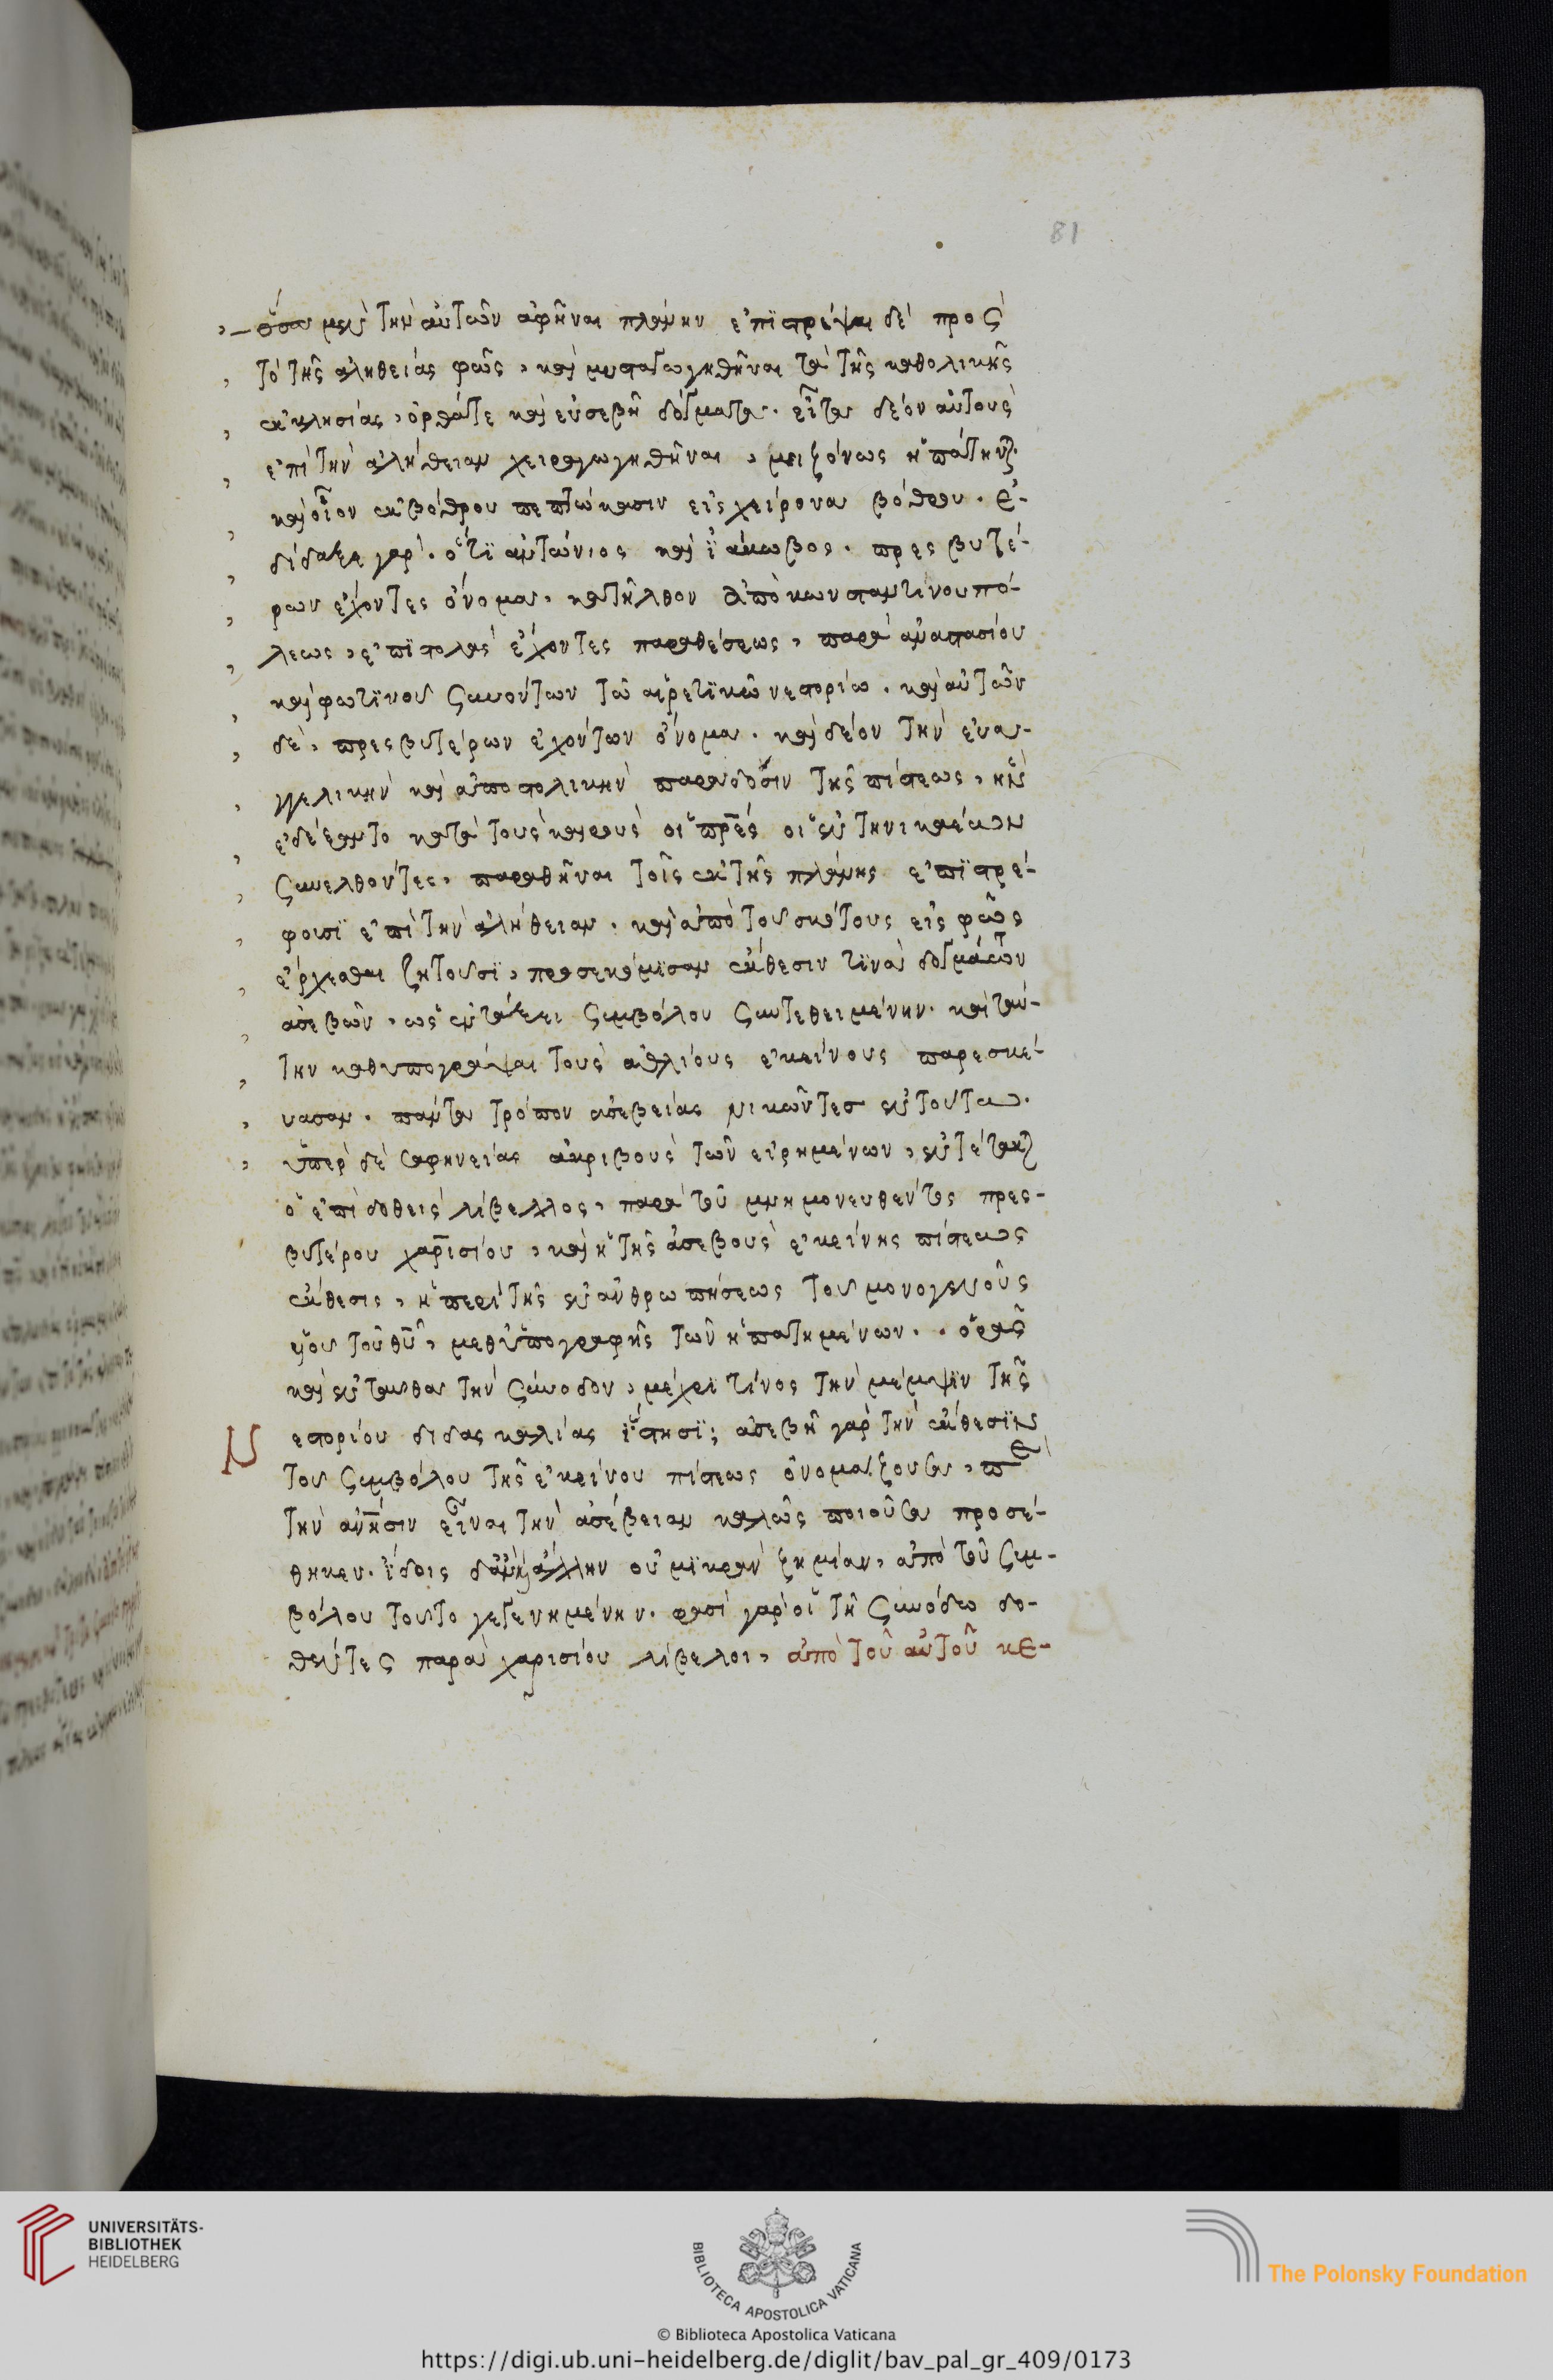 81
ὅσαι μὲν τὴν αὐτῶν ἀφῆναι πλάνην ἐπϊστρέψαι δὲ πρὸς
τὸ τῆς ἀληθείας φῶς, καὶ μυσταγωγηθῆναι τὰ τῆς καθολικῆς
ἐκκλησίας, ὀρθάτε καὶ εὐσεβῆ δόγματα. εἶτα δέον αὐτοὺς
ἐπὶ τὴν ἀλήθειαν χειραγωγηθῆναι, μειζόνως ἠπάτηνται
καὶ οἷον ἐκ βόθρου πεπτώκασιν εἰς χείρονα βόθρον. ἐ-
δίδαξε γὰρ. ὅτϊ ἀντώνιος καὶ ϊάκωβος. πρεσβυτέ-
ρων ἔχοντες ὄνομα, κατῆλθον ἀπὸ κωνσταντίνουπό-
λεως, ἐπϊστολὰς ἔχοντες παραθέσεως, παρὰ ἀναστασίου
καὶ φωτϊνοῦ συνόντων τῶ αἱρετϊκῶ νεστορίω. καὶ αὐτῶν
δὲ, πρεσβυτέρων ἐχόντων ὄνομα. καὶ δέον τὴν εὐα-
γγελικὴν καὶ ἀποστολικὴν παράδοσιν τῆς πίστεως, ἣν
ἐδέξαντο κατὰ τοὺς καιροὺς οἱ πρες οἱ ἐν τηνικαίαν
συνελθόντες, παραθῆναι τοῖς ἐκ τῆς πλάνης ἐπϊστρέ-
φουσϊ ἐπὶ τὴν ἀλήθειαν. καὶ ἀπὸ τοῦ σκότους εἰς φῶς
ἔρχεσθαι ζητοῦσϊ, προσεκόμϊσαν ἔκθεσιν τϊνὰ δογμάτων
ἀσεβῶν, ὡς ἐν τάξει συμβόλου συντεθειμένην. καὶ ταύ-
την καθυπογράψαι τοὺς ἀθλίους ἐκείνους παρεσκεύ-
υασαν. πάντα τρόπον ἀσεβείας νικῶντες ἐν τούτω.
ὑπὲρ δὲ σαφηνείας ἀκριβοὺς τῶν εἰρημένων, ἐντέτακται
ὁ ἐπιδοθεὶς λίβελλος, παρὰ τοῦ μνημονευθέντος πρεσ-
βυτέρου χαρισίου, καὶ ἡ τῆς ἀσεβοὺς ἐκείνης πίστεως
ἔκθεσις, ἡ περὶ τῆς ἐνανθρωπήσεως τοῦ μονογενοῦς
υἱοῦ τοῦ θῦ, μεθ ὑπογραφῆς τῶν ἠπατημένων. . ὁρᾶς
καὶ ἐνταῦθα τὴν σύνοδον, μέχρϊ τίνος τὴν μέμψϊν τῆς
Νεστορίου διδασκαλίας ἵστησϊ; ἀσεβῆ γὰρ τὴν ἔκθεσϊν
τοῦ συμβόλου τῆς ἐκείνου πίστεως ὀνομάζουσα,
τὴν εἶναι τὴν ἀσέβειαν καλῶς ποιοῦσα προσέ-
θηκεν. ἴδοις δἂν καὶ ἄλλην οὐ μϊκρὰν ζημίαν, ἀπὸ τοῦ συμ-
βόλου τοῦτο γεγενημένην. φασὶ γὰρ οἱ τῆ συνόδω δο-
θέντες παρὰ χαρισίου λίβελοι, ἀπὸ τοῦ αὐτοῦ κε-
UNIVERSITÄTS-
BIBLIOTHEK
HEIDELBERG
BIBLIOTECA APOSTOLICA VATICANA
The Polonsky Foundation
© Biblioteca Apostolica Vaticana
https://digi.ub.uni-heidelberg.de/diglit/bav_pal_gr_409/0173